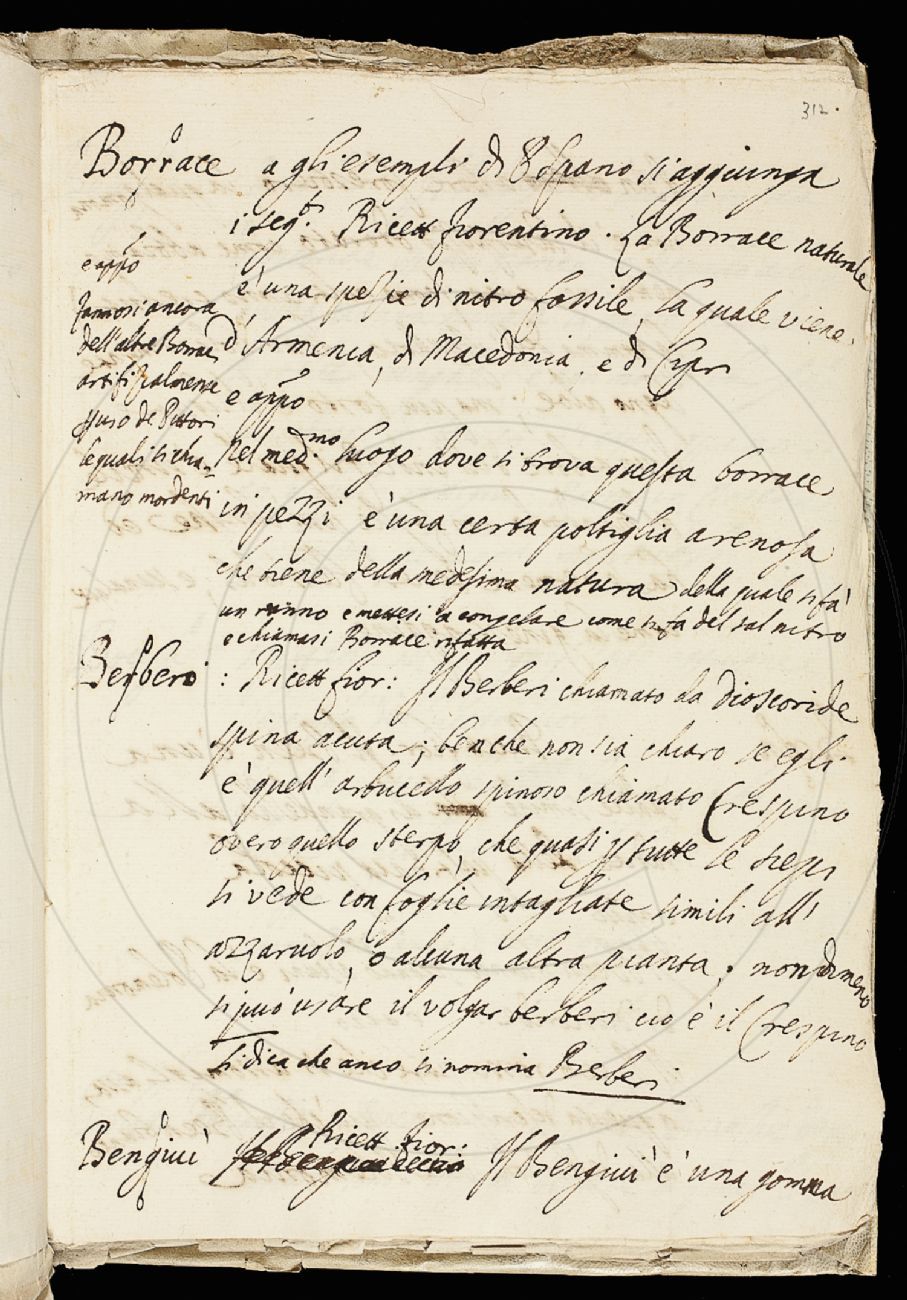 312.
Borrace a gli esempli di si aggiunga
i seg.ti Ricett fiorentino. La Borrace naturale
è una spezie di nitro fossile, la quale viene
d'Armenia, di Macedonia, e di Cipri
e appo
nel med.mo luogo dove si trova questa borrace
in pezzi è una certa poltiglia arenosa
che tiene della medesima natura della quale si fà
un ranno e mettesi a congelare come si fà del sal nitro
e chiamasi Borrace rifatta
e appo
fannosi ancora
dell'altre Borraci
artifizialmente
de Pittori
le quali si chia-
mano mordenti
Berberi : Ricett fior: Il Berberi chiamato da Dioscoride
spina acuta; benche non sia chiaro se egli
è quell' arbucello spinoso chiamato Crespino
overo quello sterpo, che quasi p tutte le siepi
si vede con foglie intagliate simili all'
azzaruolo, o alcuna altra pianta; non dimeno
si può usare il volgar berberi cio è il Crespino
si dica che anco si nomina Berberi
Bengiui Ricett. fior: Il Bengiui è una gomma